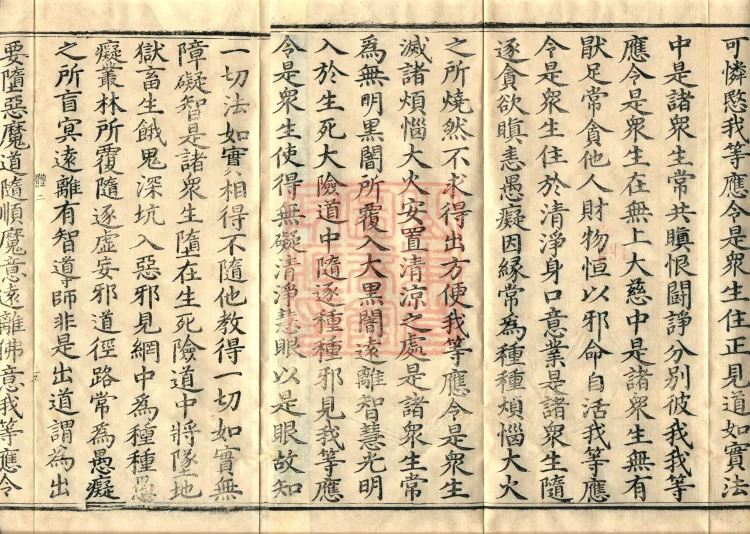 可憐愍我等應令是衆生住正見道如實法
中是諸衆生常共瞋恨鬪諍分別彼我我等
應令是衆生在無上大慈中是諸衆生無有
猒足常貪他人財物恒以邪命自活我等應
令是衆生住於清淨身口意業是諸衆生隨
逐貪欲瞋恚愚癡因緣常爲種種煩惱大火
之所燒然不求得出方便我等應令是衆生
滅諸煩惱大火安置清凉之處是諸衆生常
爲無明黑闇所覆入大黑闇遠離智慧光明
入於生死大險道中隨逐種種邪見我等應
令是衆生使得無礙清淨慧眼以是眼故知
一切法如實相得不隨他教得一切如實無
障礙智是諸衆生墮在生死險道中將墜地
獄畜生餓鬼深坑入惡邪見網中爲種種愚
癡叢林所覆隨逐虛妄邪道徑路常爲愚癡
之所盲冥遠離有智導師非是出道謂爲出
體二
五
要墮惡魔道隨順魔意遠離佛意我等應令